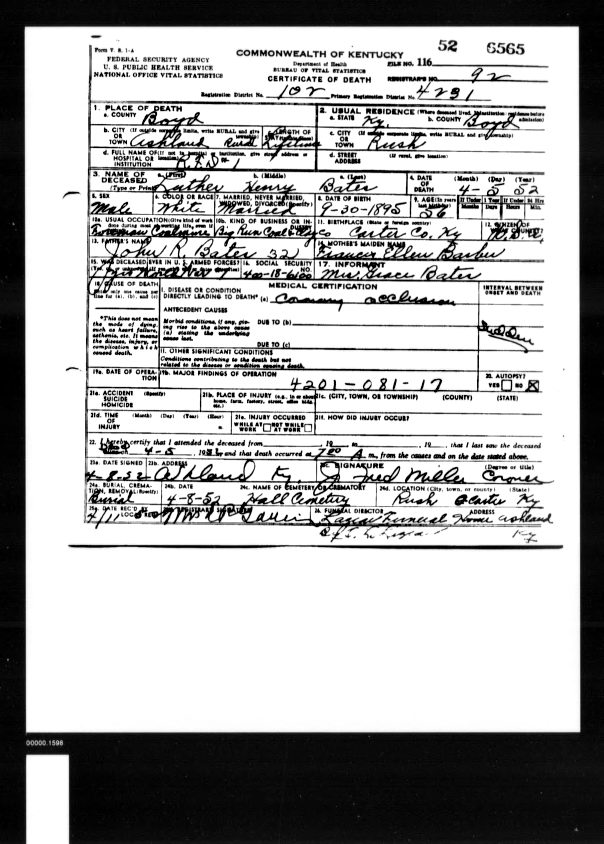 Form V. S. 1-A
FEDERAL SECURITY AGENCY
U. S. PUBLIC HEALTH SERVICE
NATIONAL OFFICE VITAL STATISTICS
COMMONWEALTH OF KENTUCKY
Department of Health
BUREAU OF VITAL STATISTICS
CERTIFICATE OF DEATH
52 6565
FILE NO. 116
REGISTRAR'S NO. 92
Registration District No. 102 Primary Registration District No. 4231
1. PLACE OF DEATH
a. COUNTY Boyd
2. USUAL RESIDENCE (Where deceased lived. If institution: residence before admission)
a. STATE Ky. b. COUNTY Boyd
b. CITY (If outside corporate limits, write RURAL and give
OR
TOWN Ashland Rural Lifetime
c. CITY (If outside corporate limits, write RURAL and give township)
OR
TOWN Rush
d. FULL NAME OF (If not in hospital or institution, give street address or location)
HOSPITAL OR
INSTITUTION R.F.D. 1
d. STREET ADDRESS (If rural, give location)
3. NAME OF DECEASED (Type or Print)
a. (First) Luther b. (Middle) Henry c. (Last) Bates
4. DATE OF DEATH (Month) (Day) (Year) 4-5 52
5. SEX Male
6. COLOR OR RACE White
7. MARRIED, NEVER MARRIED, WIDOWED, DIVORCED (Specify) Married
8. DATE OF BIRTH 9-30-1895
9. AGE (In years last birthday) 56
If Under 1 Year Months Days If Under 24 Hrs Hours Min.
10a. USUAL OCCUPATION (Give kind of work
10b. KIND OF BUSINESS OR IN- Big Run Coal & Clay Co
11. BIRTHPLACE (State or foreign country) Carter Co. Ky
12. CITIZEN OF U.S.A.
13. FATHER'S NAME John R. Bates 32
14. MOTHER'S MAIDEN NAME Frances Ellen Barber
15. WAS DECEASED EVER IN U. S. ARMED FORCES?
16. SOCIAL SECURITY NO. 400-18-6100
17. INFORMANT Mrs. Grace Bates
18. CAUSE OF DEATH
MEDICAL CERTIFICATION
INTERVAL BETWEEN ONSET AND DEATH
I. DISEASE OR CONDITION
DIRECTLY LEADING TO DEATH* (a) Coronary occlusion
Sudden
*This does not mean the mode of dying, such as heart failure, asthenia, etc. It means the disease, injury, or complication which caused death.
ANTECEDENT CAUSES
Morbid conditions, if any, giving rise to the above cause (a) stating the underlying cause last.
DUE TO (b)
DUE TO (c)
II. OTHER SIGNIFICANT CONDITIONS
Conditions contributing to the death but not
related to the disease or condition causing death.
19a. DATE OF OPERATION
19b. MAJOR FINDINGS OF OPERATION
4201-081-17
20. AUTOPSY?
YES NO X
21a. ACCIDENT SUICIDE HOMICIDE (Specify)
21b. PLACE OF INJURY (e.g., in or about home, farm, factory, street, office bldg., etc.)
21c. (CITY, TOWN, OR TOWNSHIP) (COUNTY) (STATE)
21d. TIME OF INJURY (Month) (Day) (Year) (Hour) m.
21e. INJURY OCCURRED
WHILE AT WORK NOT WHILE AT WORK
21f. HOW DID INJURY OCCUR?
22. I hereby certify that I attended the deceased from 19 to 19, that I last saw the deceased
4-5, 1952, and that death occurred at 7:00 A m., from the causes and on the date stated above.
23a. DATE SIGNED 4-8-52
23b. ADDRESS Ashland Ky
23c. SIGNATURE (Degree or title) Fred Miller Coroner
24a. BURIAL, CREMATION, REMOVAL (Specify) Burial
24b. DATE 4-8-52
24c. NAME OF CEMETERY OR CREMATORY Hall Cemetery
24d. LOCATION (City, town, or county) (State) Rush Carter Ky
25a. DATE REC'D BY LOCAL REG. 4/11
25b. REGISTRAR'S SIGNATURE
26. FUNERAL DIRECTOR ADDRESS
Lazear Funeral Home Ashland
Ky
00000.1598